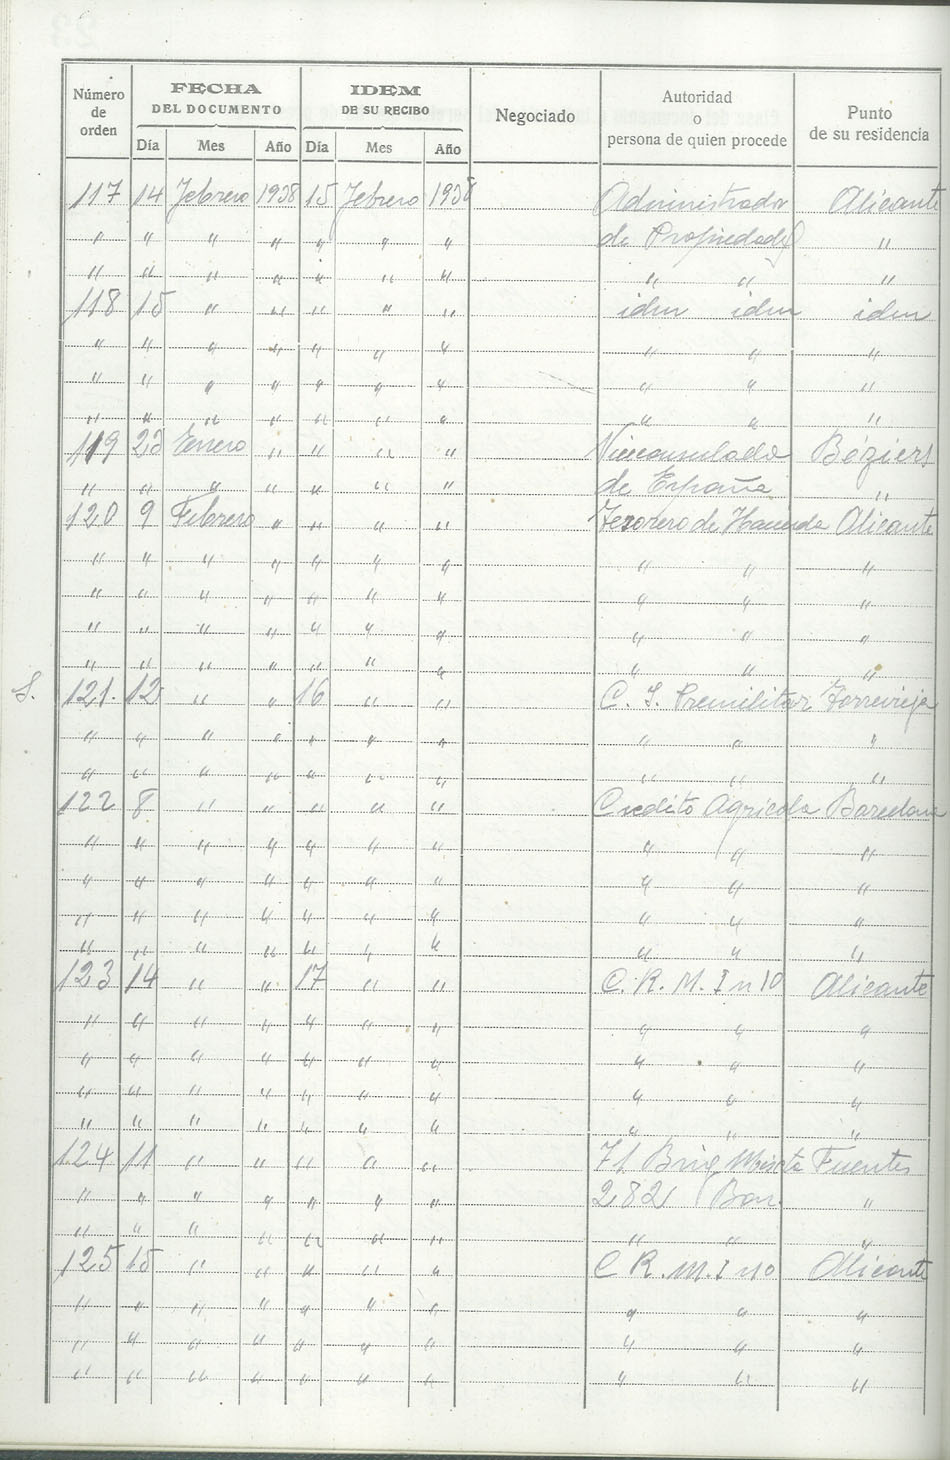 Número de orden | FECHA DEL DOCUMENTO | IDEM DE SU RECIBO | Negociado | Autoridad o persona de quien procede | Punto de su residencia
Día Mes Año Día Mes Año
117 14 Febrero 1938 15 Febrero 1938 Administrador Alicante
" " " " " " " de Propiedades "
" " " " " " " " " "
118 15 " " " " " idem idem idem
" " " " " " " " " "
" " " " " " " " " "
" " " " " " " " " "
119 23 Enero " " " " Viceconsulado Béziers
" " " " " " " de España "
120 9 Febrero " " " " Tesorero de Hacienda Alicante
" " " " " " " " " "
" " " " " " " " " "
" " " " " " " " " "
" " " " " " " " " "
S. 121. 12 " " 16 " " C. I. Premilitar Torrevieja
" " " " " " " " " "
" " " " " " " " " "
122 8 " " " " " Credito Agricola Barcelona
" " " " " " " " " "
" " " " " " " " " "
" " " " " " " " " "
" " " " " " " " " "
123 14 " " 17 " " C. R. M. I n 10 Alicante
" " " " " " " " " "
" " " " " " " " " "
" " " " " " " " " "
" " " " " " " " " "
124 11 " " " " " 71 Brig Mixta Fuentes
" " " " " " " 282 Bon. "
" " " " " " " " " "
125 15 " " " " " C R. M. I n 10 Alicante
" " " " " " " " " "
" " " " " " " " " "
" " " " " " " " " "